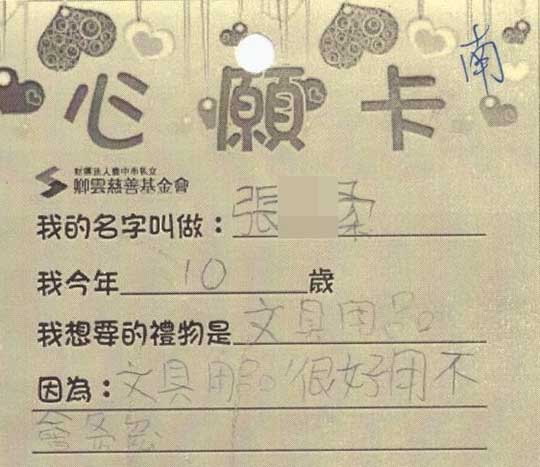 南
心願卡
財團法人臺中市私立
卿雲慈善基金會
我的名字叫做：張柔
我今年10歲
我想要的禮物是文具用品
因為：文具用品很好用不
會